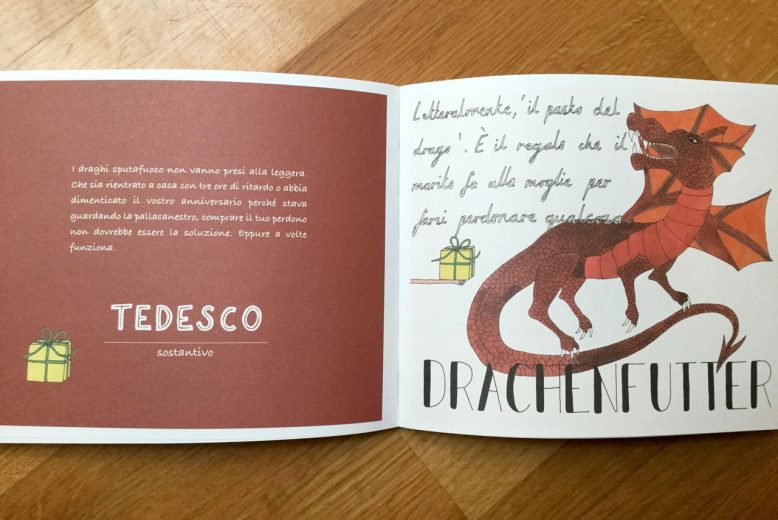 I draghi sputafuoco non vanno presi alla leggera.
Che sia rientrato a casa con tre ore di ritardo o abbia
dimenticato il vostro anniversario perché stava
guardando la pallacanestro, comprare il tuo perdono
non dovrebbe essere la soluzione. Eppure a volte
funziona.
TEDESCO
sostantivo
Letteralmente, 'il pasto del
drago'. È il regalo che il
marito fa alla moglie per
farsi perdonare qualcosa.
DRACHENFUTTER